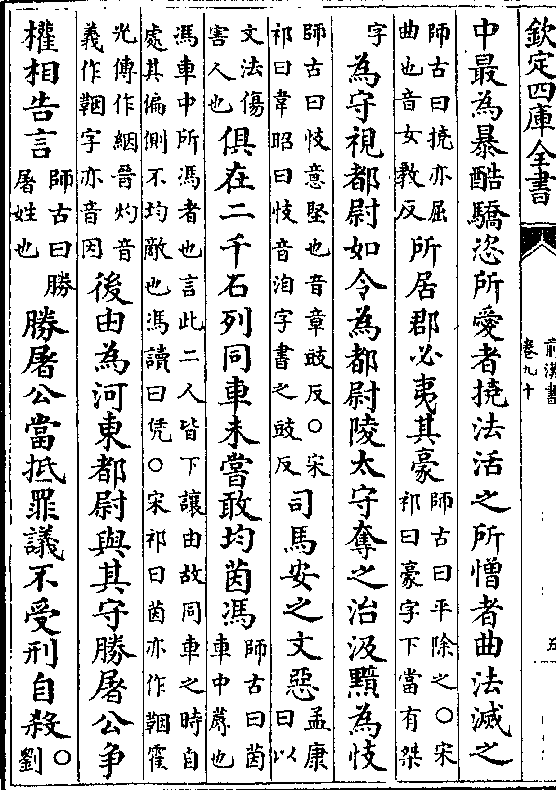 欽定四庫全書
前漢書
卷九十
五
中最為暴酷驕恣所愛者撓法活之所憎者曲法滅之
師古曰撓亦屈曲也音女敎反所居郡必夷其豪師古曰平除之○宋祁曰豪字下當有桀
字為守視都尉如令為都尉陵太守奪之治汲黯為忮
師古曰忮意堅也音章豉反○宋祁曰韋昭曰忮音洎字書之豉反司馬安之文惡孟康曰以
文法傷害人也俱在二千石列同車未嘗敢均茵馮師古曰茵車中蓐也
馮車中所馮者也言此二人皆下讓由故同車之時自處其偏側不均敵也馮讀曰凭○宋祁曰茵亦作鞇霍
光傳作絪晉灼音義作鞇字亦音因後由為河東都尉與其守勝屠公争
權相告言師古曰勝屠姓也勝屠公當抵罪議不受刑自殺○劉